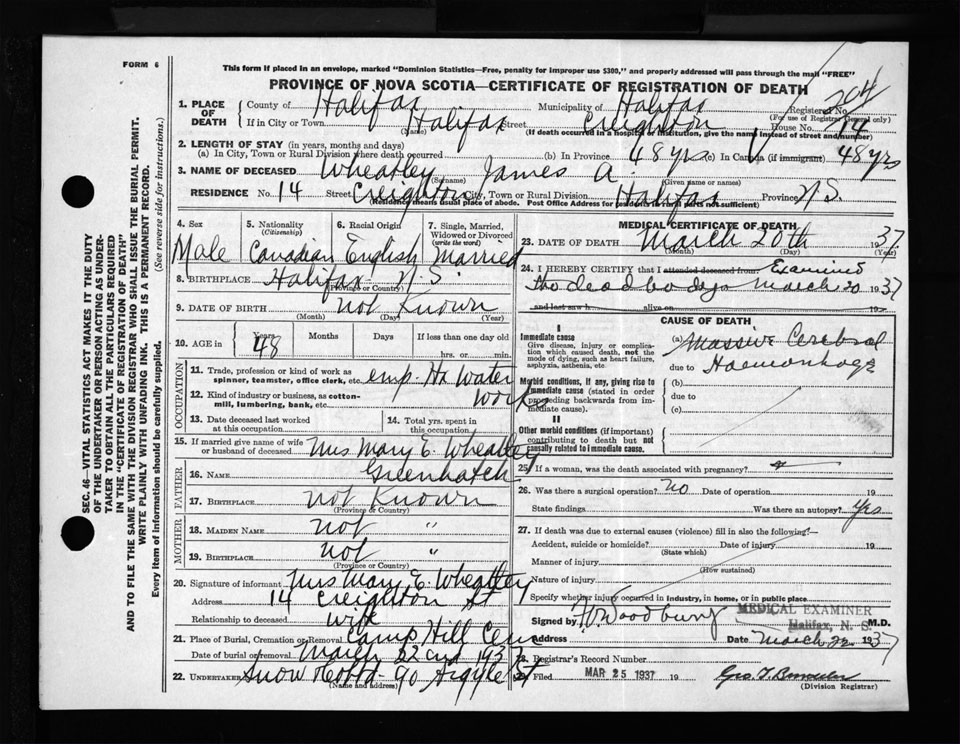 FORM 6
This form if placed in an envelope, marked "Dominion Statistics—Free, penalty for improper use $300," and properly addressed will pass through the mail "FREE"
PROVINCE OF NOVA SCOTIA—CERTIFICATE OF REGISTRATION OF DEATH
1. PLACE OF DEATH
County of Halifax Municipality of Halifax Registered No. 204
(For use of Registrar General only)
If in City or Town Halifax Street Creighton House No. 14
(Name) (If death occurred in a hospital or institution, give the name instead of street and number)
2. LENGTH OF STAY (in years, months and days)
(a) In City, Town or Rural Division where death occurred (b) In Province 48 yrs (c) In Canada (if immigrant) 48 yrs
3. NAME OF DECEASED Wheatley, James A.
(Surname) (Given name or names)
RESIDENCE No. 14 Street Creighton City, Town or Rural Division Halifax Province N.S.
(Residence means usual place of abode. Post Office Address for residents in rural parts not sufficient)
4. Sex Male
5. Nationality (Citizenship) Canadian
6. Racial Origin English
7. Single, Married, Widowed or Divorced (write the word) Married
8. BIRTHPLACE Halifax N.S.
(Province or Country)
9. DATE OF BIRTH not Known
(Month) (Day) (Year)
10. AGE in Years 48 Months Days If less than one day old
hrs. or min.
OCCUPATION
11. Trade, profession or kind of work as spinner, teamster, office clerk, etc. emp. Hx Water
12. Kind of industry or business, as cotton-mill, lumbering, bank, etc. Works
13. Date deceased last worked at this occupation
14. Total yrs. spent in this occupation
15. If married give name of wife or husband of deceased Mrs Mary E. Wheatley
Greenhatch
FATHER
16. NAME
17. BIRTHPLACE not Known
(Province or Country)
MOTHER
18. MAIDEN NAME not "
19. BIRTHPLACE not "
(Province or Country)
20. Signature of informant Mrs Mary E. Wheatley
Address 14 Creighton St
Relationship to deceased wife
21. Place of Burial, Cremation or Removal Camp Hill Cem
Date of burial or removal March 22nd 1937
22. UNDERTAKER Snow 90 Argyle St
(Name and address)
MEDICAL CERTIFICATE OF DEATH
23. DATE OF DEATH March 20th 1937
(Month) (Day) (Year)
24. I HEREBY CERTIFY that I attended deceased from Examined
the dead body March 20 1937
and last saw h alive on 19
CAUSE OF DEATH
I
Immediate cause
Give disease, injury or complication which caused death, not the mode of dying, such as heart failure, asphyxia, asthenia.
(a) Massive Cerebral
due to Haemorrhage
Morbid conditions, if any, giving rise to immediate cause (stated in order proceeding backwards from immediate cause).
(b)
due to
(c)
II
Other morbid conditions (if important) contributing to death but not causally related to immediate cause.
25. If a woman, was the death associated with pregnancy?
26. Was there a surgical operation? no Date of operation 19
State findings Was there an autopsy? Yes
27. If death was due to external causes (violence) fill in also the following:—
Accident, suicide or homicide? Date of injury 19
(State which)
Manner of injury
(How sustained)
Nature of injury
Specify whether injury occurred in industry, in home, or in public place
Signed by Woodbury M.D.
MEDICAL EXAMINER
Halifax, N. S.
Address Date March 22 1937
28. Registrar's Record Number
Filed MAR 25 1937 19
(Division Registrar)
SEC. 46—VITAL STATISTICS ACT MAKES IT THE DUTY
OF THE UNDERTAKER OR PERSON ACTING AS UNDER-
TAKER TO OBTAIN ALL THE PARTICULARS REQUIRED
IN THE "CERTIFICATE OF REGISTRATION OF DEATH"
AND TO FILE THE SAME WITH THE DIVISION REGISTRAR WHO SHALL ISSUE THE BURIAL PERMIT.
WRITE PLAINLY WITH UNFADING INK. THIS IS A PERMANENT RECORD.
Every item of information should be carefully supplied. (See reverse side for instructions.)